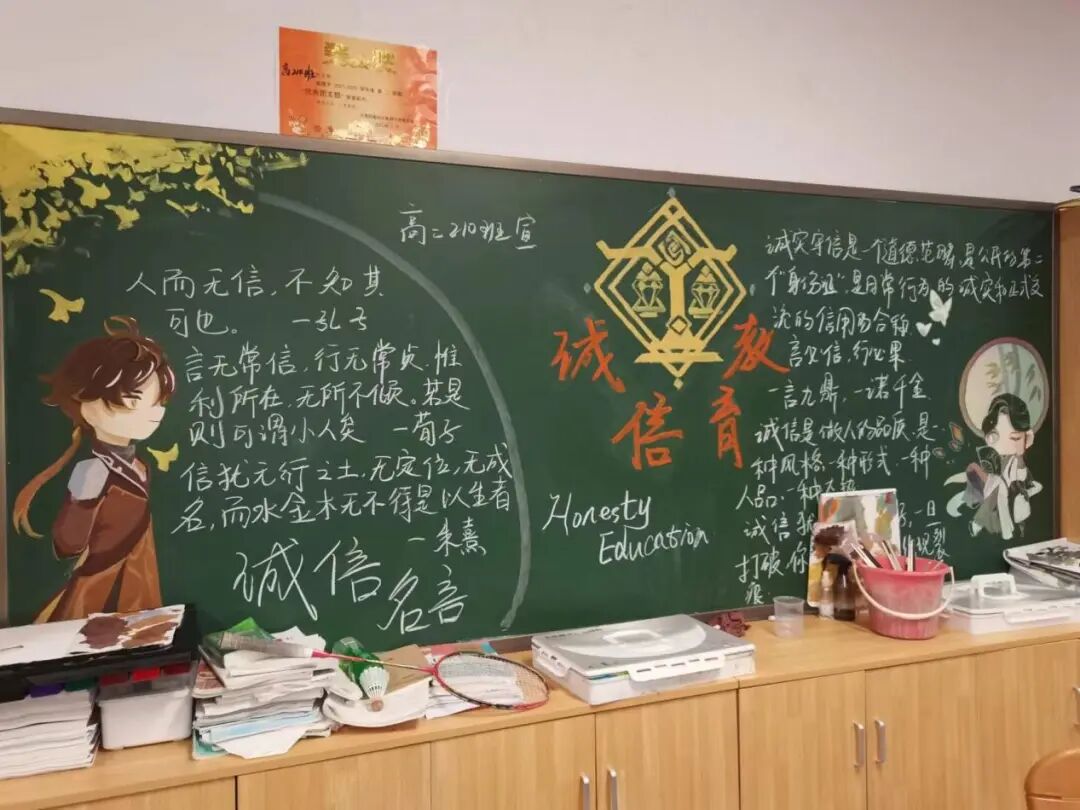 高210班
优秀团支部
高二210班宣
人而无信，不知其
可也。 一孔子
言无常信，行无常贞，惟
利所在，无所不倾。若是
则可谓小人矣 一荀子
信犹五行之土，无定位，无成
名，而水金木无不得是以生者
一朱熹
诚信
名言
诚信
教育
Honesty
Education
诚实守信是一个道德范畴，是公民的第二
个“身份证”，是日常行为的诚实和正式交
流的信用的合称
言必信，行必果
一言九鼎，一诺千金
诚信是做人的品质，是一
种风格，一种形式，一种
人品，一种
诚信 一旦
打破，你 现裂
痕